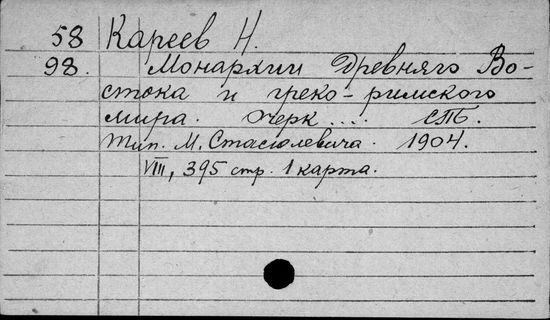 58 Кареев Н.
98. Монархии Древняго Во-
стока и греко-римского
мира. Очерк .... СПБ.
Тип. М. Стасюлевича. 1904.
VIII, 395 стр. 1 карта.